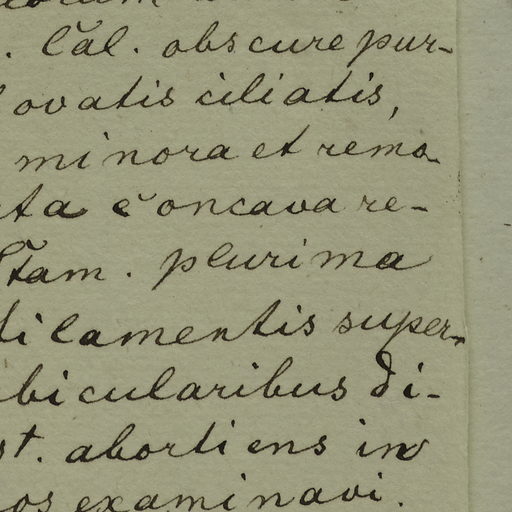 . Cal. obscure pur-
ovatis ciliatis,
minora et remo-
ta concava re-
Stam. plurima
filamentis super-
bicularibus di-
st. abortiens in
os examinavi.